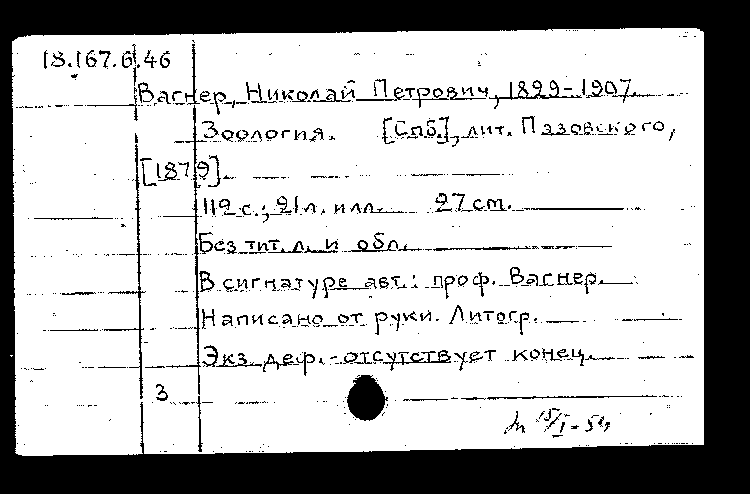 18.167.6.46
Вагнер, Николай Петрович, 1829-1907.
Зоология. [Спб.], лит. Пазовского,
[1879].
112 с.; 21 л. илл. 27 см.
Без тит. л. и обл.
В сигнатуре авт.: проф. Вагнер.
Написано от руки. Литогр.
Экз. деф. - отсутствует конец.
3